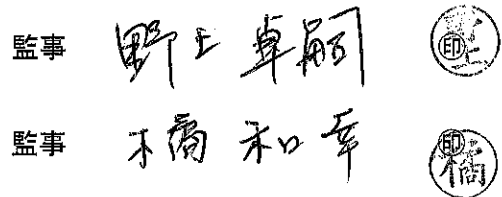 監事 野上卓嗣 ㊞
監事 橘和幸 ㊞